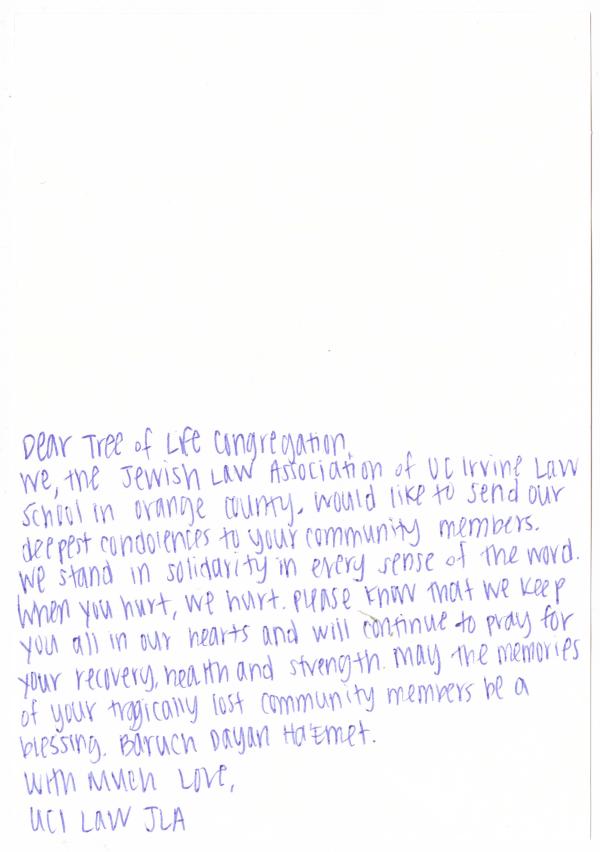 Dear Tree of Life Congregation,
We, the Jewish Law Association of UC Irvine Law
School in Orange County, would like to send our
deepest condolences to your community members.
We stand in solidarity in every sense of the word.
When you hurt, we hurt. Please know that we keep
you all in our hearts and will continue to pray for
your recovery, health and strength. May the memories
of your tragically lost community members be a
blessing. Baruch Dayan Ha'Emet.
With Much Love,
UCI LAW JLA